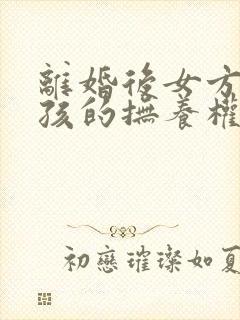 離婚後女方
孩的撫養權
初戀璀璨如夏